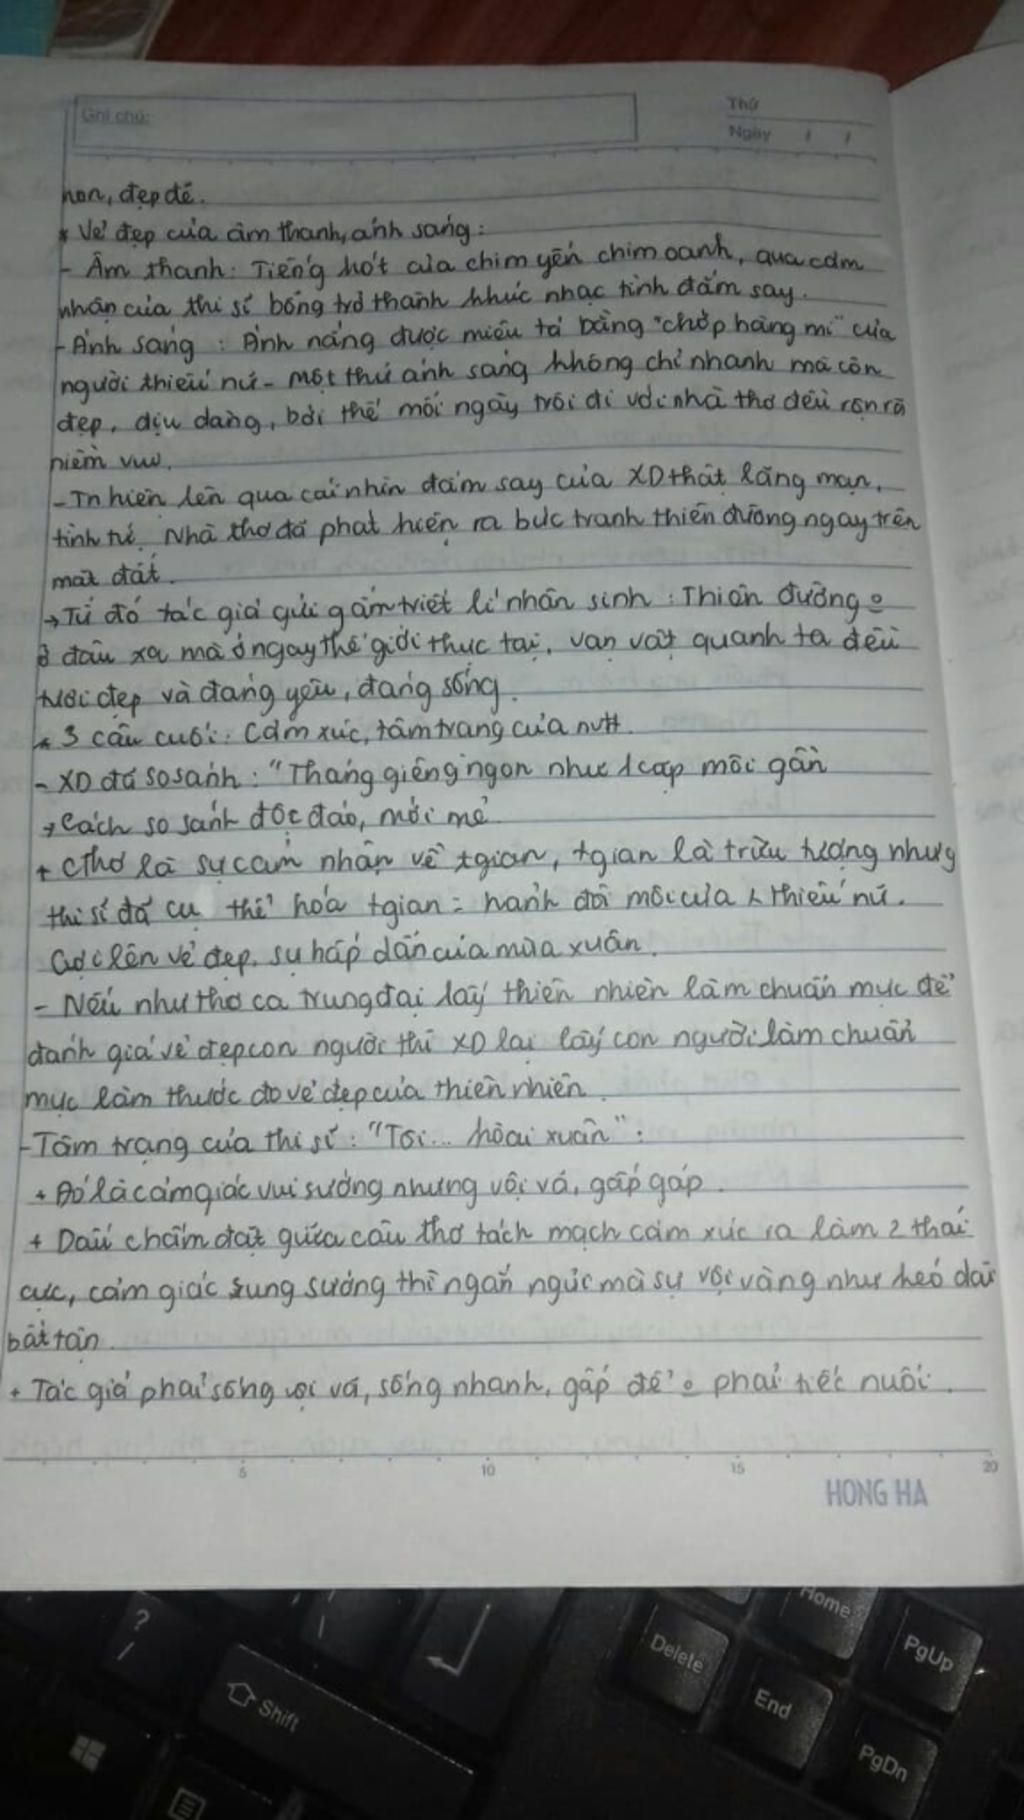 Ghi chú:
Thứ
Ngày / /
non, đẹp đẽ.
* Vẻ đẹp của âm thanh, ánh sáng:
- Âm thanh: Tiếng hót của chim yến chim oanh, qua cảm
nhận của thi sĩ bỗng trở thành khúc nhạc tình đắm say.
- Ánh sáng: Ánh nắng được miêu tả bằng "chớp hàng mi" của
người thiếu nữ - một thứ ánh sáng không chỉ nhanh mà còn
đẹp, dịu dàng, bởi thế mỗi ngày trôi đi với nhà thơ đều rộn rã
niềm vui.
- Tn hiện lên qua cái nhìn đắm say của XD thật lãng mạn,
tình tứ. Nhà thơ đã phát hiện ra bức tranh thiên đường ngay trên
mặt đất.
→ Từ đó tác giả gửi gắm triết lí nhân sinh: Thiên đường o
ở đâu xa mà ở ngay thế giới thực tại, vạn vật quanh ta đều
tươi đẹp và đáng yêu, đáng sống.
* 3 câu cuối: Cảm xúc, tâm trạng của nvtt.
- XD đã so sánh: "Tháng giêng ngon như 1 cặp môi gần
→ Cách so sánh độc đáo, mới mẻ.
+ Cthơ là sự cảm nhận về tgian, tgian là trừu tượng nhưg
thi sĩ đã cụ thể hóa tgian = hành đôi môi của 1 thiếu nữ.
Gợi lên vẻ đẹp, sự hấp dẫn của mùa xuân.
- Nếu như thơ ca trung đại lấy thiên nhiên làm chuẩn mực để
đánh giá vẻ đẹp con người thì XD lại lấy con người làm chuẩn
mực làm thước đo vẻ đẹp của thiên nhiên.
- Tâm trạng của thi sĩ: "Tôi... hoài xuân":
+ Đó là cảm giác vui sướng nhưng vội vã, gấp gáp.
+ Dấu chấm đặt giữa câu thơ tách mạch cảm xúc ra làm 2 thái
cực, cảm giác sung sướng thì ngắn ngủi mà sự vội vàng như kéo dài
bất tận.
+ Tác giả phải sống vội vã, sống nhanh, gấp để o phải tiếc nuối.
5 10 15 20
HONG HA
? /
Shift
Delete
Home
End
PgUp
PgDn